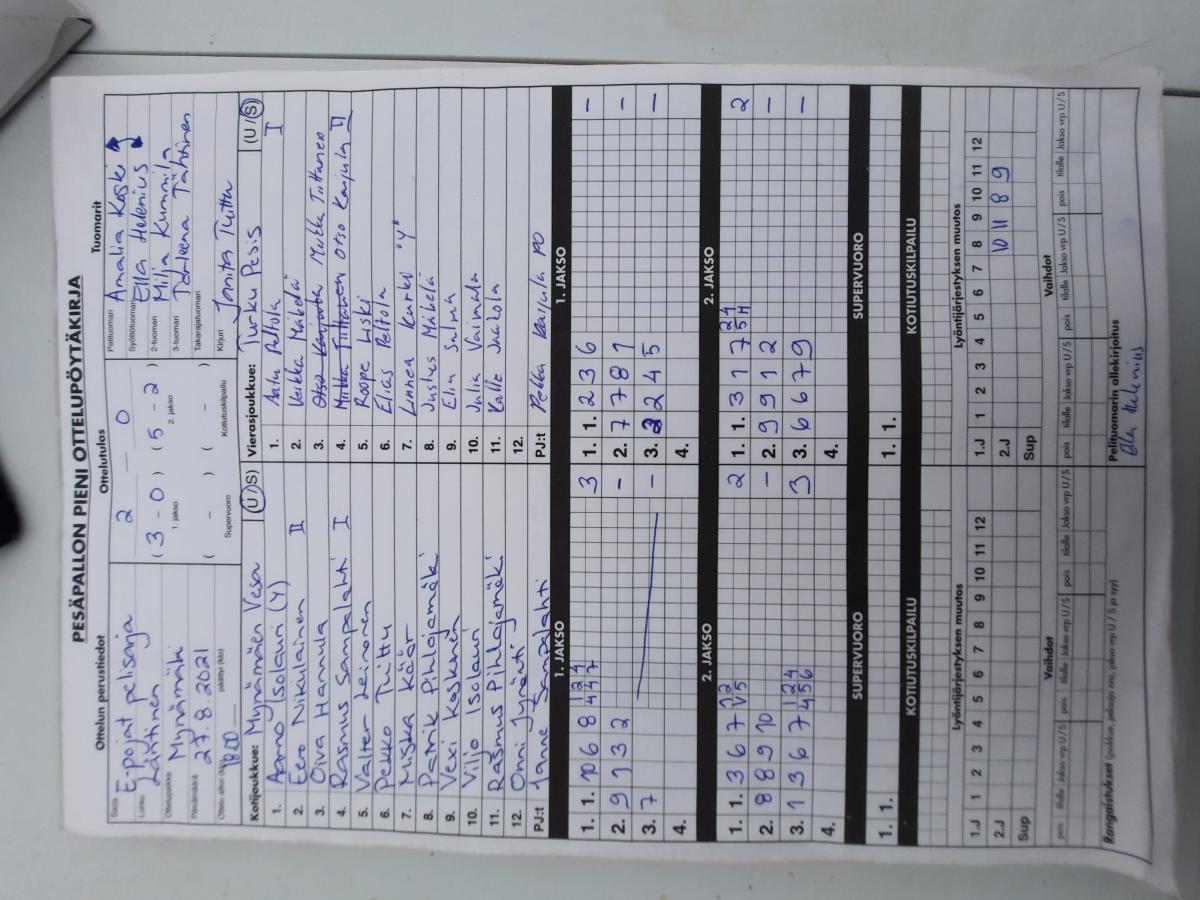 PESÄPALLON PIENI OTTELUPÖYTÄKIRJA
Ottelun perustiedot
Sarja E-pojat pelisarja
Lohko Läntinen
Ottelupaikka Mynämäki
Päivämäärä 27.8.2021
Ottelu alkoi (klo) 18.00 päättyi (klo)
Ottelutulos
2 — 0
( 3 - 0 ) ( 5 - 2 )
1. jakso 2. jakso
( - ) ( - )
Supervuoro Kotiutuskilpailu
Tuomarit
Pelituomari Amalia Koski
Syöttötuomari Ella Helenius
2-tuomari Milja Kummila
3-tuomari Tähtinen
Takarajatuomari
Kirjuri Janita Tuittu
Kotijoukkue: Mynämäen Vesa (U/S)
1. Aarno Isolauri (Y)
2. Eero Nikulainen II
3. Oiva Hannula
4. Rasmus Sampalahti I
5. Valtter Leinonen
6. Pekko Tuittu
7. Miska Käär
8. Patrik Pihlajamäki
9. Vexi Koskinen
10. Viljo Isolauri
11. Rasmus Pihlajamäki
12. Onni Jyväti
PJ:t Janne Sampalahti
Vierasjoukkue: Turku Pesis (U/S)
1. Aatu Peltola I
2. Veikka Mäkelä
3. Miikka Tiittanen
4. Miikka Tiittanen Otso Karjula II
5. Roope Liski
6. Elias Peltola
7. Linnea Kurki "Y"
8. Justus Mäkelä
9. Elia Salma
10. Julia Vainala
11. Kalle Jaakola
12.
PJ:t Pekka Karjula PO
1. JAKSO
1. 1. 10 6 8 1 2 4 4 4 7 3
2. 9 1 3 2 -
3. 7 -
4.
1. JAKSO
1. 1. 2 3 6 -
2. 7 7 8 1 -
3. 2 4 5 -
4.
2. JAKSO
1. 1. 3 6 7 1 2 V 5 2
2. 8 8 9 10 -
3. 1 3 6 7 1 2 4 4 5 6 3
4.
2. JAKSO
1. 1. 3 1 7 2 4 5 H 2
2. 9 9 1 2 -
3. 6 6 7 9 -
4.
SUPERVUORO
1. 1.
SUPERVUORO
1. 1.
KOTIUTUSKILPAILU
KOTIUTUSKILPAILU
Lyöntijärjestyksen muutos
1.J 1 2 3 4 5 6 7 8 9 10 11 12
2.J
Sup
Lyöntijärjestyksen muutos
1.J 1 2 3 4 5 6 7 8 9 10 11 12
2.J 10 11 8 9
Sup
Vaihdot
pois tilalle Jakso vrp U / S pois tilalle Jakso vrp U / S pois tilalle Jakso vrp U / S
Vaihdot
pois tilalle Jakso vrp U / S pois tilalle Jakso vrp U / S pois tilalle Jakso vrp U / S
Rangaistukset (joukkue, pelaaja nro, jakso vrp U / S ja syy)
Pelituomarin allekirjoitus
Ella Helenius